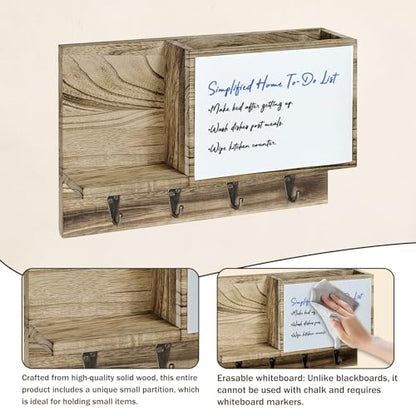 Simplified Home To-Do List
•Make bed after getting up.
•Wash dishes post meals.
•Wipe kitchen counter.
Simplified Home To-Do List
•Make bed after
•Wash dishes pos
•Wipe kitchen
Crafted from high-quality solid wood, this entire
product includes a unique small partition, which
is ideal for holding small items.
Erasable whiteboard: Unlike blackboards, it
cannot be used with chalk and requires
whiteboard markers.